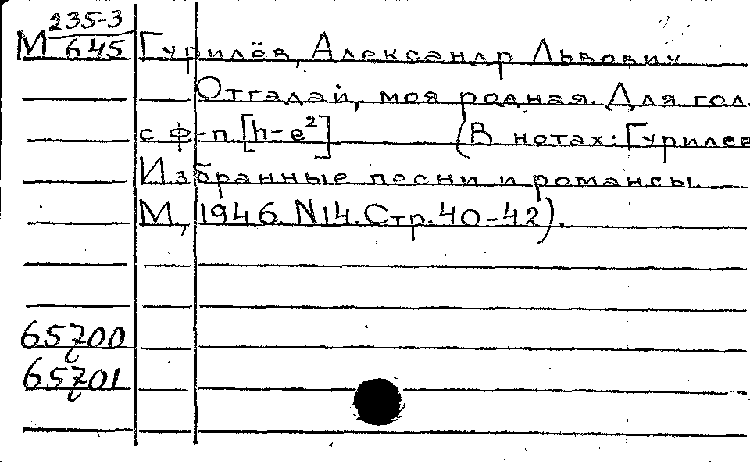 235-3
М 645 Гурилёв, Александр Львович
Отгадай, моя родная. Для гол.
с ф-п [h-e²] (В нотах: Гурилев
Избранные песни и романсы.
М, 1946. N14. Стр. 40-42).
65700
65701